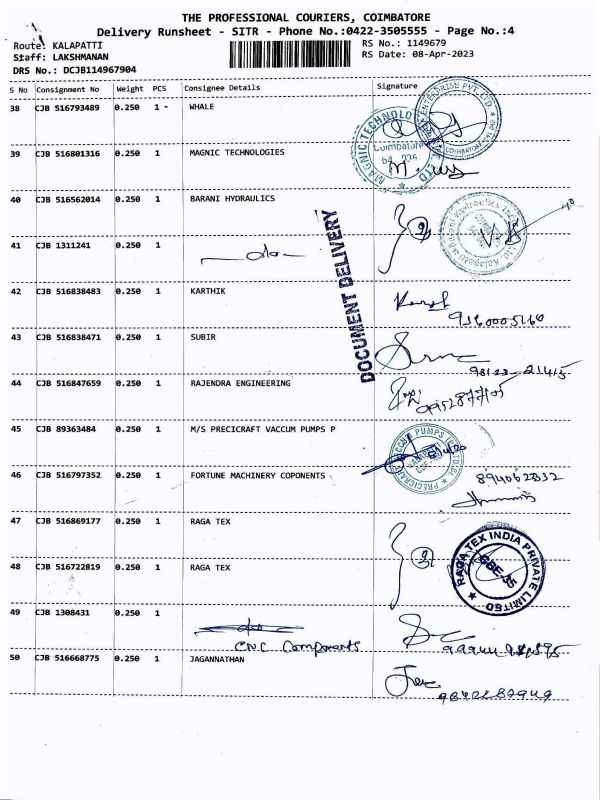 THE PROFESSIONAL COURIERS, COIMBATORE
Delivery Runsheet - SITR - Phone No.:0422-3505555 - Page No.:4
Route: KALAPATTI RS No.: 1149679
Staff: LAKSHMANAN RS Date: 08-Apr-2023
DRS No.: DCJB114967904
S No Consignment No Weight PCS Consignee Details Signature
38 CJB 516793489 0.250 1 - WHALE
39 CJB 516801316 0.250 1 MAGNIC TECHNOLOGIES
40 CJB 516562014 0.250 1 BARANI HYDRAULICS
41 CJB 1311241 0.250 1 -do-
DOCUMENT DELIVERY
42 CJB 516838483 0.250 1 KARTHIK
43 CJB 516838471 0.250 1 SUBIR
98122-21415
44 CJB 516847659 0.250 1 RAJENDRA ENGINEERING
45 CJB 89363484 0.250 1 M/S PRECICRAFT VACCUM PUMPS P
46 CJB 516797352 0.250 1 FORTUNE MACHINERY COPONENTS
47 CJB 516869177 0.250 1 RAGA TEX
48 CJB 516722819 0.250 1 RAGA TEX
RAGA TEX INDIA PRIVATE LIMITED
CBE-35
49 CJB 1308431 0.250 1
CNC Components
50 CJB 516668775 0.250 1 JAGANNATHAN